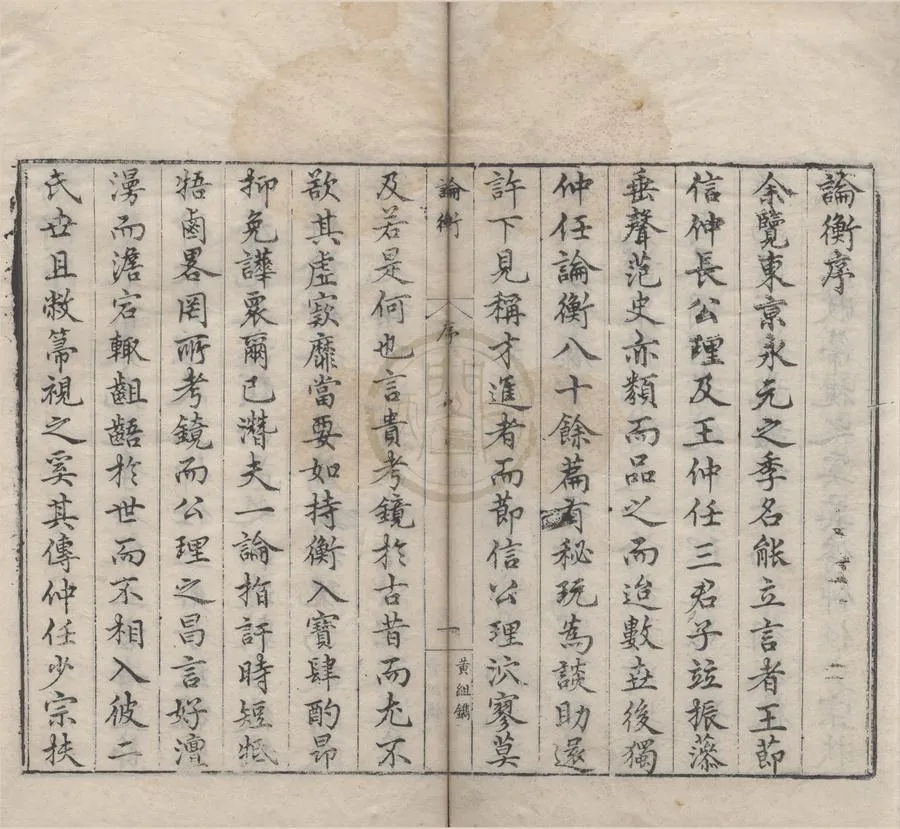 論衡序
余覽東京永元之季名能立言者王節
信仲長公理及王仲任三君子竝振藻
垂聲范史亦類而品之而迨數世後獨
仲任論衡八十餘篇有秘玩爲談助還
許下見稱才進者而節信公理泬寥莫
論衡
序
一
黄組鐫
及若是何也言貴考鏡於古昔而尤不
欲其虛窾靡當要如持衡入寶肆酌昂
抑免譁衆爾已潛夫一論指訐時短牴
牾鹵畧罔所考鏡而公理之昌言好澶
漫而澹宕輒齟齬於世而不相入彼二
氏世且敝帚視之奚其傳仲任少宗扶